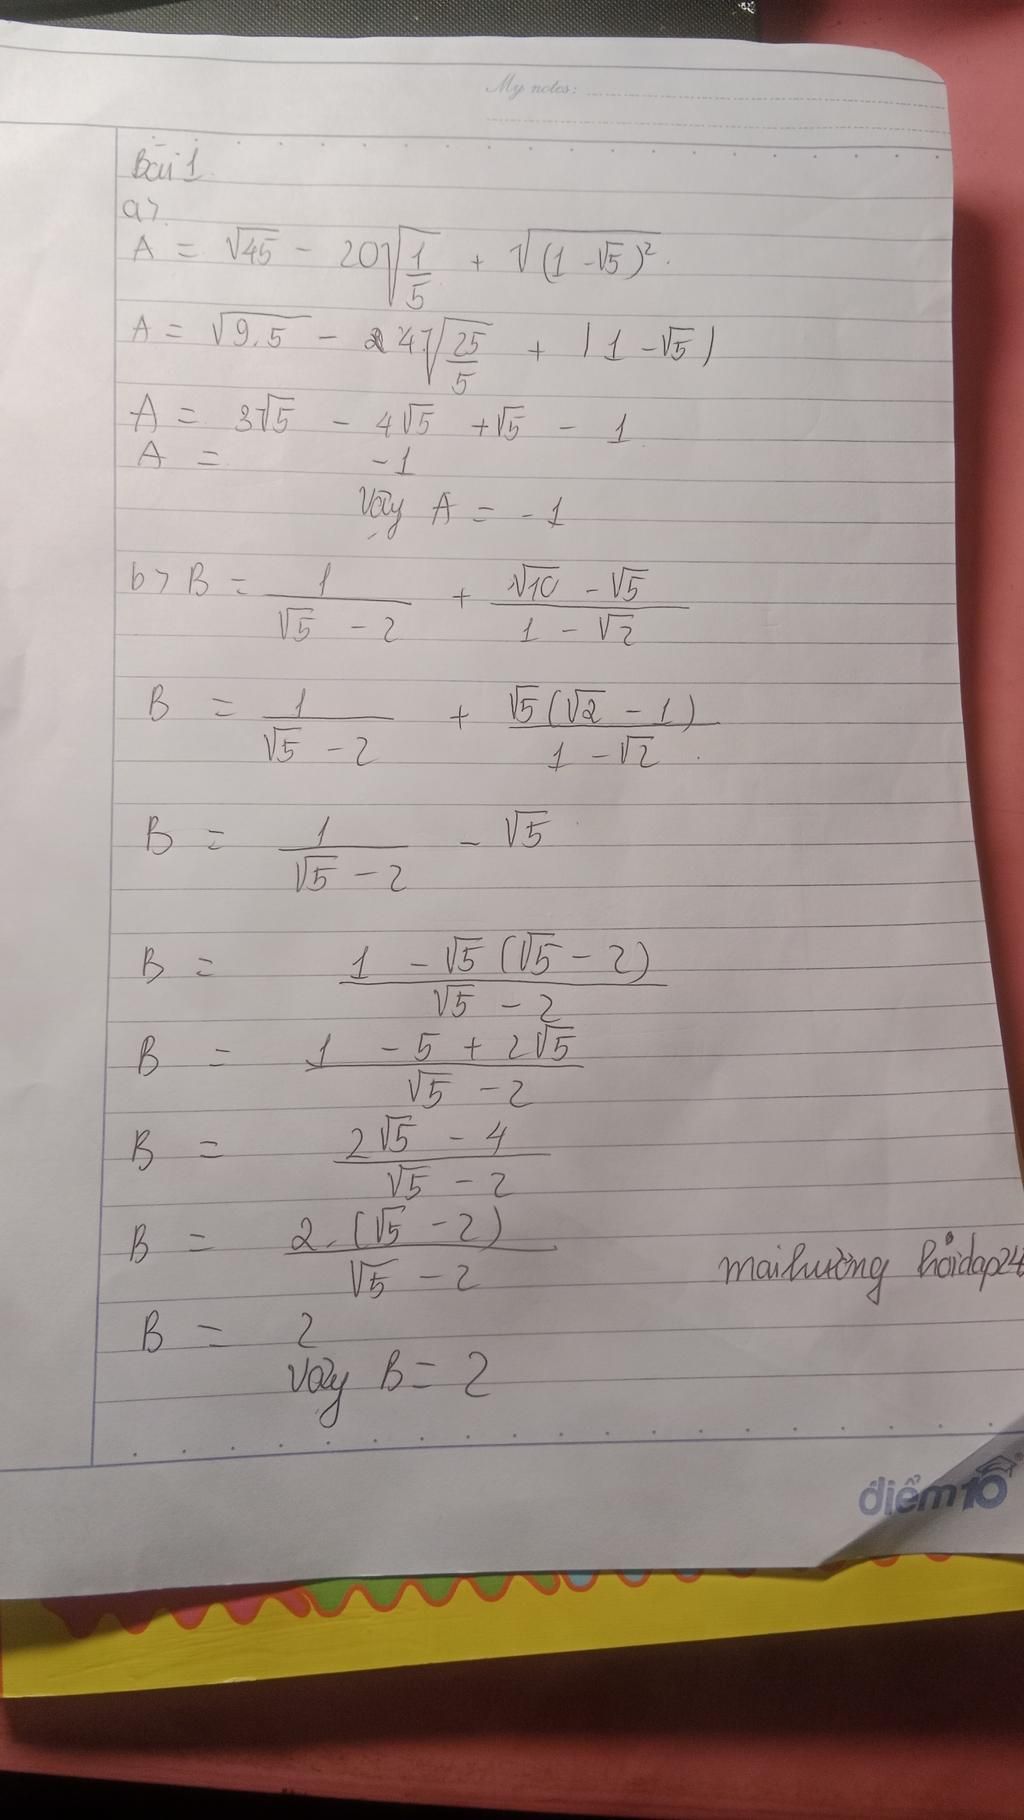 My notes:
Bài 1.
a>
A = √45 - 20√(1/5) + √((1 - √5)²).
A = √(9.5) - 4.√(25/5) + |1 - √5|
A = 3√5 - 4√5 + √5 - 1
A = -1
Vậy A = -1
b> B = 1/(√5 - 2) + (√10 - √5)/(1 - √2)
B = 1/(√5 - 2) + √5(√2 - 1)/(1 - √2).
B = 1/(√5 - 2) - √5
B = (1 - √5(√5 - 2))/(√5 - 2)
B = (1 - 5 + 2√5)/(√5 - 2)
B = (2√5 - 4)/(√5 - 2)
B = 2.(√5 - 2)/(√5 - 2)
maihường hỏidap24
B = 2
Vậy B = 2
điểm10